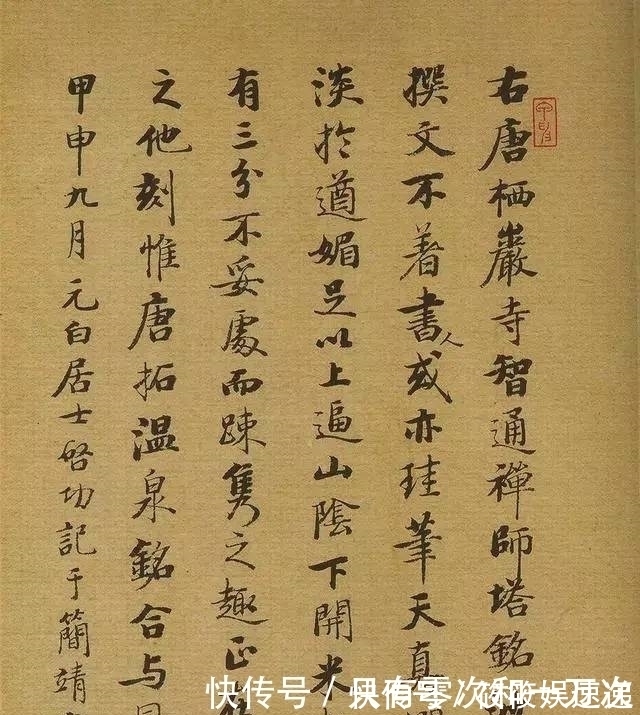 右唐栖巖寺智通禪師塔銘
撰文不著書人或亦珪筆天真
淡於遒媚足以上逼山陰下開米
有三分不妥處而踈雋之趣正
之他刻惟唐拓溫泉銘合与
甲申九月元白居士啓功記于簡靖
快传号